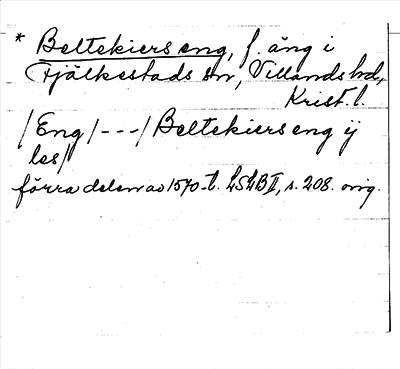 * Beltekiers eng, f. äng i
Fjälkestads sn, Villands hd,
Krist. l.
/Eng/ - - - / Beltekiers eng ij
les/
förra delen av 1570-t. LSLB II, s. 208. orig.